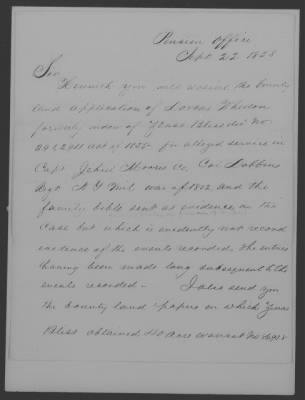 Pension Office
Sept 22 1858
Sir
Herewith you will receive the bounty
land application of Lovens Whedon
formerly widow of Zenas Bliss dec No
242288 act of 1855 for alleged service in
Capt John Moores Co, Col Dobbins
Regt N Y Mil. war of 1812 and the
family bible sent as evidence in the
case but which is evidently not record
evidence of the events recorded, the entries
having been made long subsequent to the
events recorded — I also send you
the bounty land papers on which Zenas
Bliss obtained 40 acre warrant No